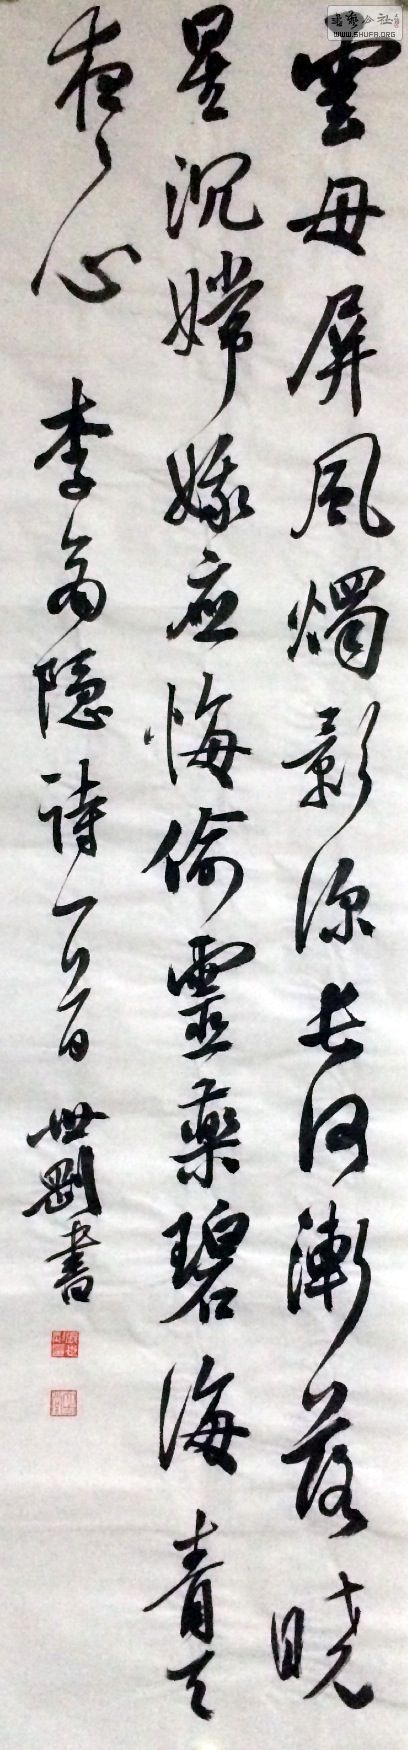 雲母屏風燭影深長河漸落曉
星沉嫦娥應悔偷靈藥碧海青天
夜夜心 李商隱詩一首 世剛書
WWW.SHUFA.ORG